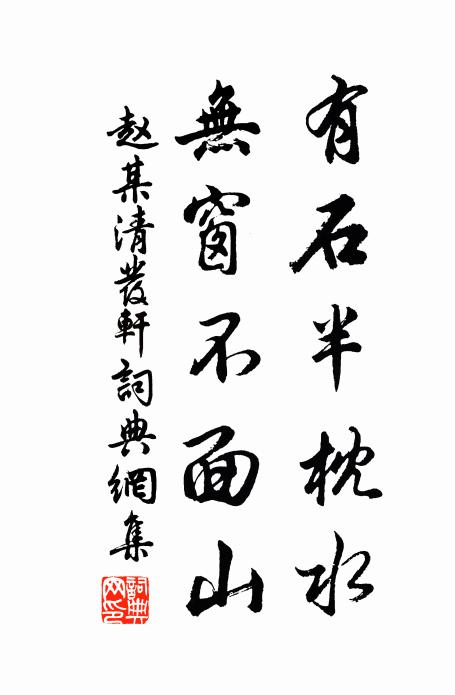 有石半枕水
無窗不面山
赵某清發軒詞典網集
詞典網印